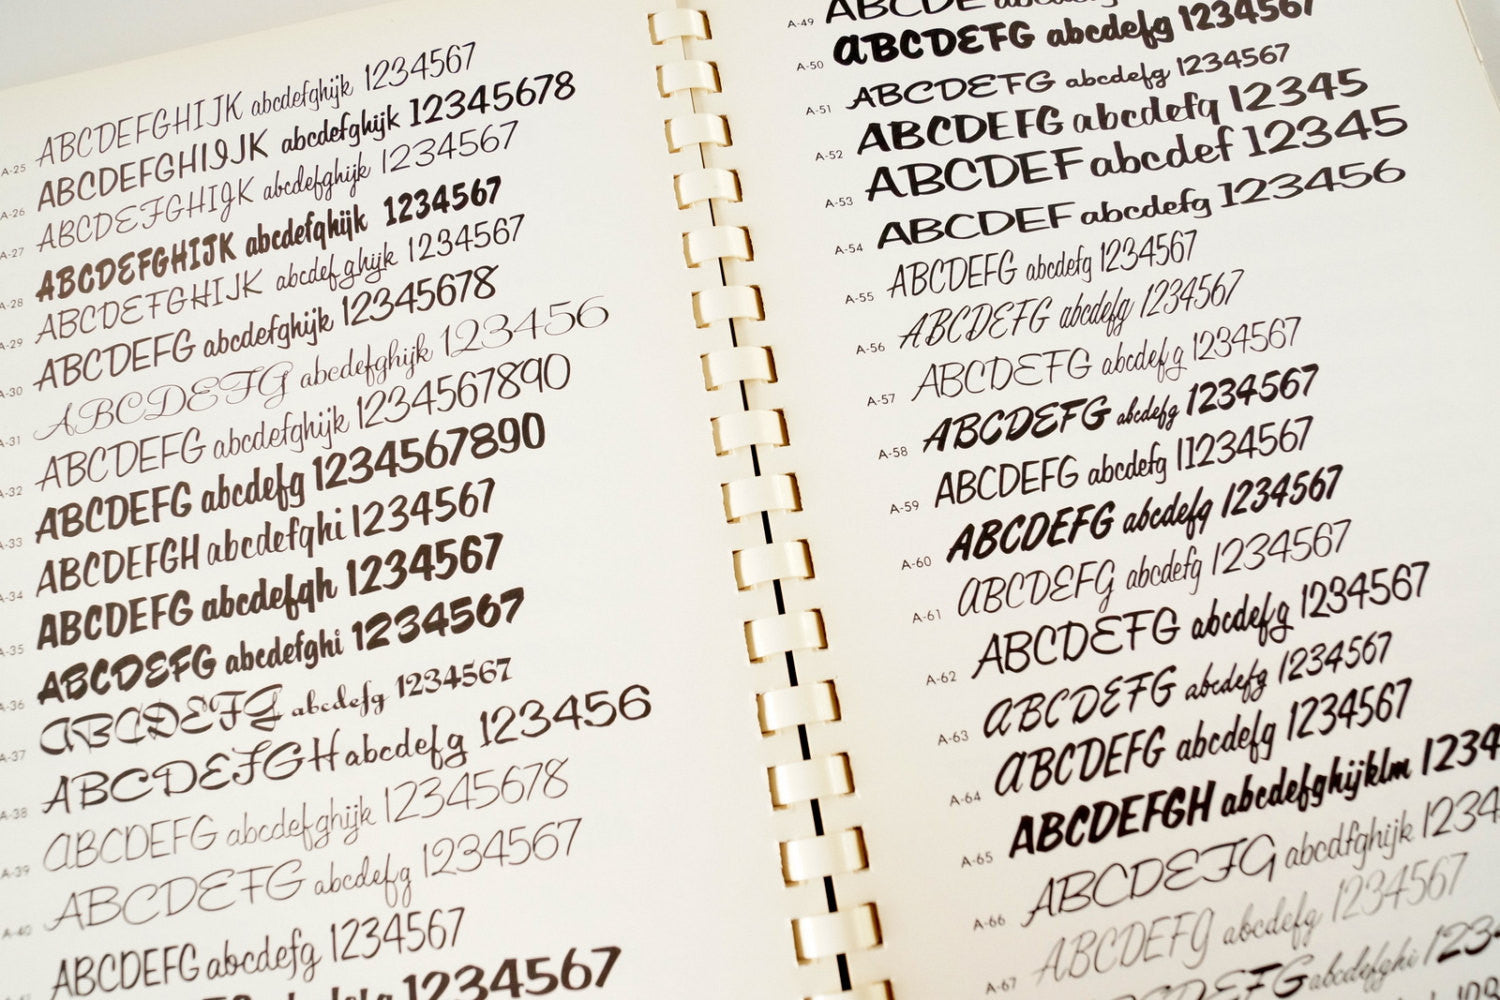 A-25 ABCDEFGHIJK abcdefghijk 1234567
A-26 ABCDEFGHIIJK abcdefghijk 12345678
A-27 ABCDEFGHIJK abcdefghijk 1234567
A-28 ABCDEFGHIJK abcdefghijk 1234567
A-29 ABCDEFGHIJK abcdefghijk 1234567
A-30 ABCDEFG abcdefghijk 12345678
A-31 ABCDEFG abcdefghijk 123456
A-32 ABCDEFG abcdefghijk 1234567890
A-33 ABCDEFG abcdefg 1234567890
A-34 ABCDEFGH abcdefghi 1234567
A-35 ABCDEFG abcdefgh 1234567
A-36 ABCDEFG abcdefghi 1234567
A-37 ABCDEFG abcdefg 1234567
A-38 ABCDEFGH abcdefg 123456
A-39 ABCDEFG abcdefghijk 12345678
A-40 ABCDEFG abcdefg 1234567
ABCDEFG abcdefg 1234567
1234567
A-49 ABCDE
A-50 ABCDEFG abcdefg 1234567
A-51 ABCDEFG abcdefg 1234567
A-52 ABCDEFG abcdefg 12345
A-53 ABCDEF abcdef 12345
A-54 ABCDEF abcdefg 123456
A-55 ABCDEFG abcdefg 1234567
A-56 ABCDEFG abcdefg 1234567
A-57 ABCDEFG abcdefg 1234567
A-58 ABCDEFG abcdefg 1234567
A-59 ABCDEFG abcdefg 11234567
A-60 ABCDEFG abcdefg 1234567
A-61 ABCDEFG abcdefg 1234567
A-62 ABCDEFG abcdefg 1234567
A-63 ABCDEFG abcdefg 1234567
A-64 ABCDEFG abcdefg 1234567
A-65 ABCDEFGH abcdefghijklm 1234
A-66 ABCDEFG abcdfghijk 1234
A-67 ABCDEFG abcdefg 1234567
ABCDEFG abcdefghi 123